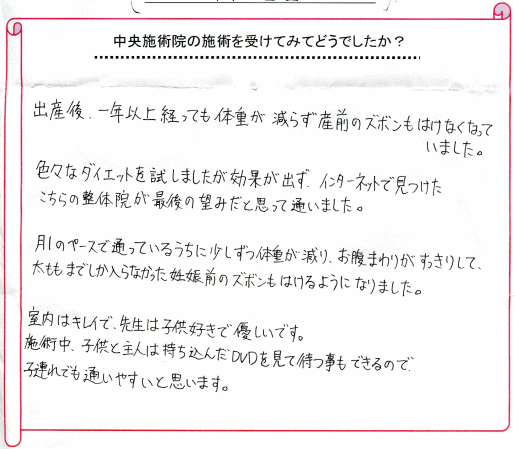 中央施術院の施術を受けてみてどうでしたか？
出産後、一年以上経っても体重が減らず産前のズボンもはけなくなって
いました。
色々なダイエットを試しましたが効果が出ず、インターネットで見つけた
こちらの整体院が最後の望みだと思って通いました。
月1のペースで通っているうちに少しずつ体重が減り、お腹まわりがすっきりして、
太ももまでしか入らなかった妊娠前のズボンもはけるようになりました。
室内はキレイで、先生は子供好きで優しいです。
施術中、子供と主人は持ち込んだDVDを見て待つ事もできるので、
子連れでも通いやすいと思います。